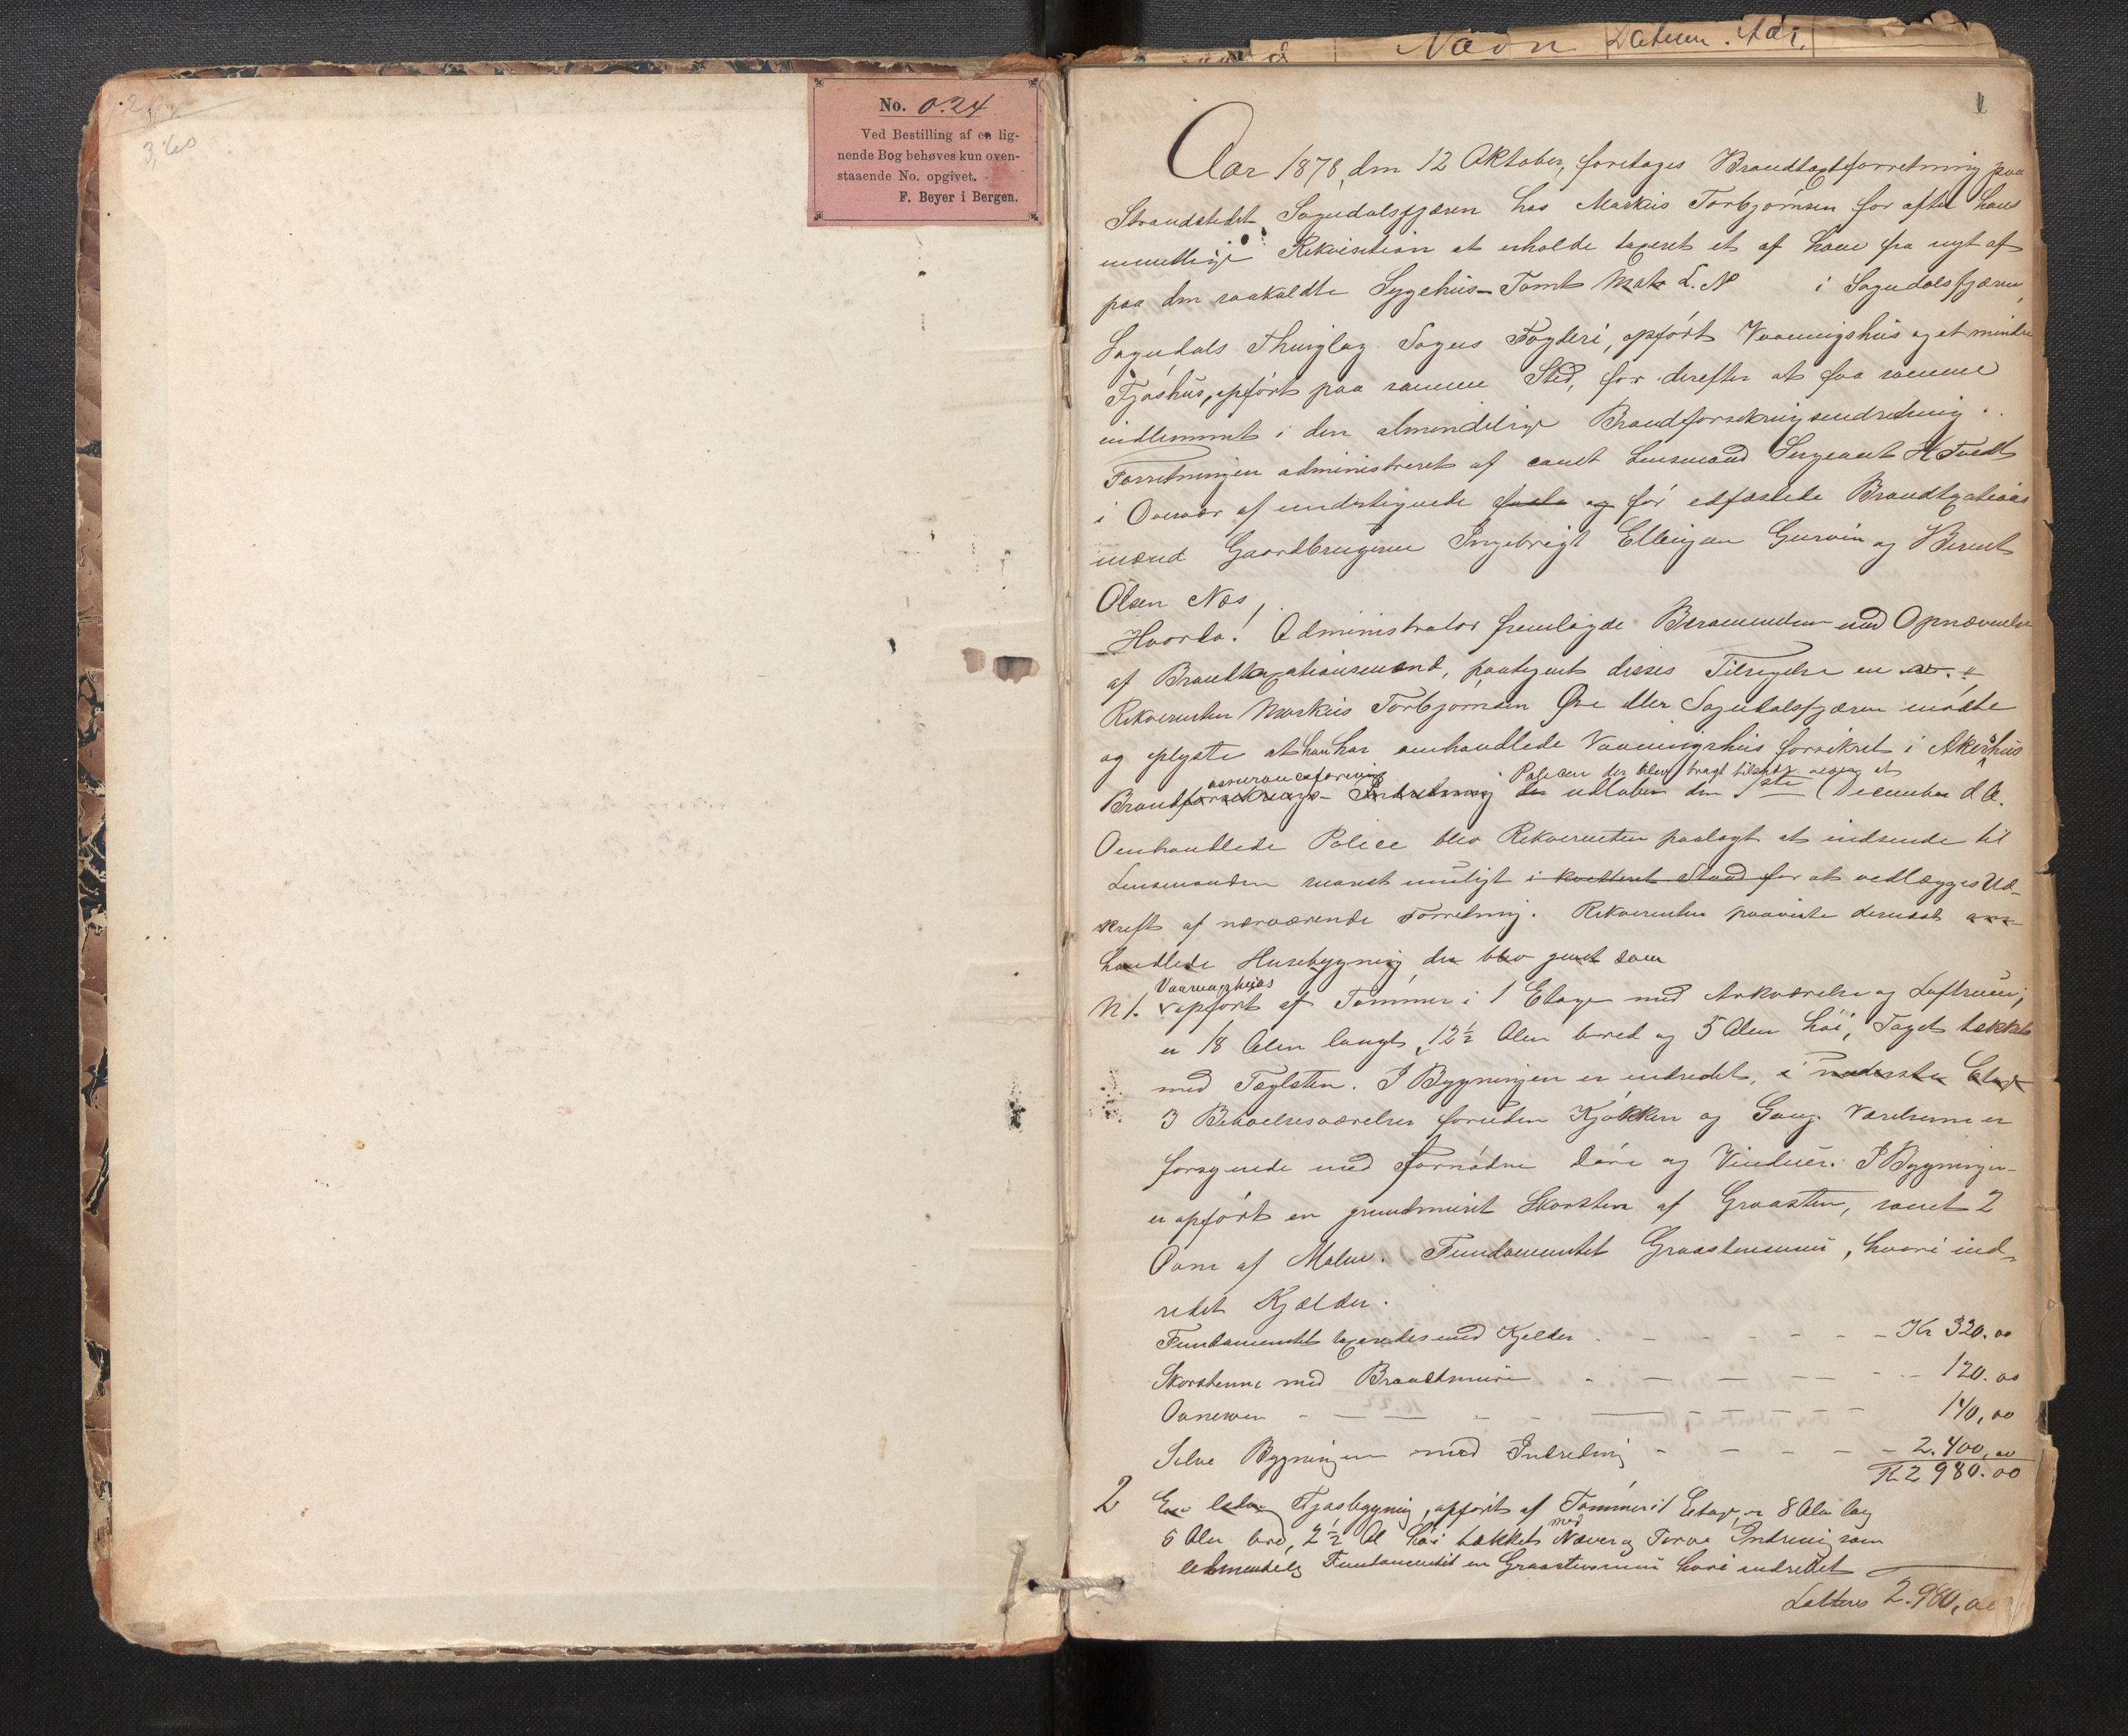 Navn Datum. Aar.
3,60
No. 0.24
Ved Bestilling af en lig-
nende Bog behøves kun oven-
staaende No. opgivet.
F. Beyer i Bergen.
1
Aar 1878, den 12 Oktober, foretoges Brandtaxtforretning paa
Strandstedet Sogndalsfjæren hos Markus Torbjørnsen for efter hans
mundtlige Rekvisition at erholde taxeret et af ham fra nyt af
paa den saakaldte Sygehus-Tomt Matr L. No i Sogndalsfjæren,
Sogndals Thinglag Sogns Fogderi, opført Vaaningshus og et mindre
Fjøshus, opført paa samme Sted, for derefter at faa samme
indlemmet i den almindelige Brandforsikringsindretning.
Forretningen administreret af const Lensmand Sergeant H Tvedt
i Overvær af undertegnede faste og før edfæstede Brandtaxations
mænd Gaardbrugerne Ingebrigt Ellingsen Gurvin og Berent
Olsen Næs,
Hvorda! Administrator fremlagde Berammelsen med Opnævnelse
af Brandtaxationsmænd, paategnet disses Tilsigelse
Rekvirenten Markus Torbjørnsen Øre eller Sogndalsfjæren mødte
og oplyste at han har omhandlede Vaaningshus forsikret i Akershus
assuranceforening Policen der blev
Brandforsikrings-Indretning der udløber den 1ste December d A.
Omhandlede Police blev Rekvirenten paalagt at indsende til
Lensmanden snarest muligt i kvitteret Stand for at vedlægges Ud-
skrift af nærværende Forretning. Rekvirenten paaviste dernæst om-
handlede Husebygning der blev
Vaaningshus
N 1. opført af Tømmer i 1 Etage med Arkværelse og Loftrum,
er 18 Alen langt, 12½ Alen bred og 5 Alen høi, Taget tækket
med Taglsten. I Bygningen er indredet, i nederste Etage
3 Beboelsesværelser foruden Kjøkken og Gang. Værelserne er
forsynede med fornødne Døre og Vinduer. I Bygningen
er opført en grundmuret Skorsten af Graasten, samt 2
Ovne af Malm. Fundamentet Graastensmur, hvori ind-
redet Kjælder.
Fundamentet taxeredes med Kjelder - - - - - - Kr 320.00
Skorstenene med Brandmure - - - - - - 120.00
Ovnene - - - - - - - - - 140,00
Selve Bygningen med Indredning - - - - - 2.400,00
Kr 2980.00
2 En liden Fjøsbygning, opført af Tømmer i 1 Etage, er 8 Alen lang
med
6 Alen bred, 2½ Al høi tækket Næver og Torv Indredning som
almindelig Fundamentet en Graastensmur hvori indredet
Latteres 2.980,00